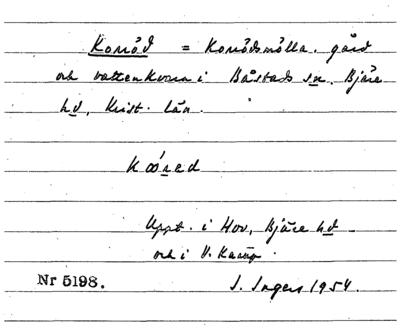 Konöd = Konödsmölla. gård
och vattenkvarn i Båstads sn. Bjäre
hd, Krist. län.
Uppt. i Hov, Bjäre hd
och i V. Karup.
Nr 5198.
I. Ingers 1954.